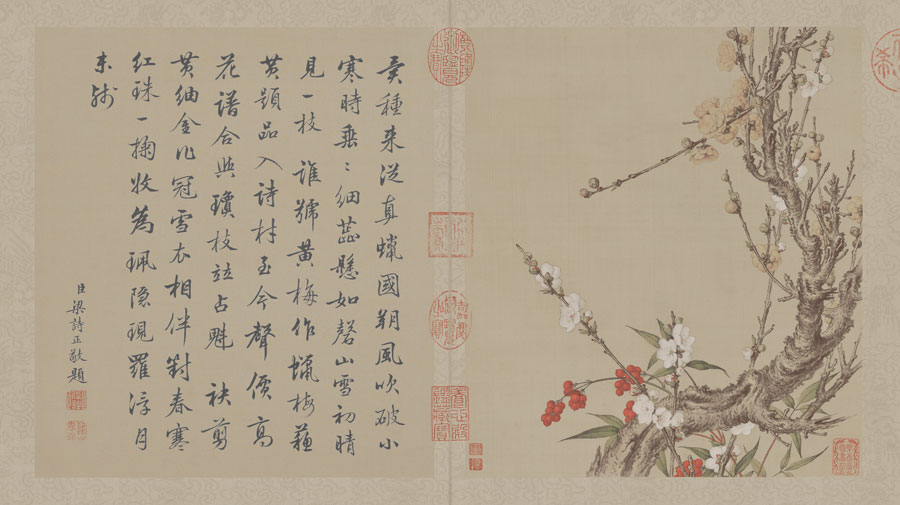 異種來從真蠟國朔風吹破小
寒時垂〻細蕊懸如磬山雪初晴
見一枝 誰號黃梅作蠟梅蘇
黃題品入詩材至今聲價高
花譜合與瓊枝竝占魁 袂剪
黃紬金作冠雪衣相伴對春寒
紅珠一掬收為珮隱現羅浮月
未殘
臣梁詩正敬題